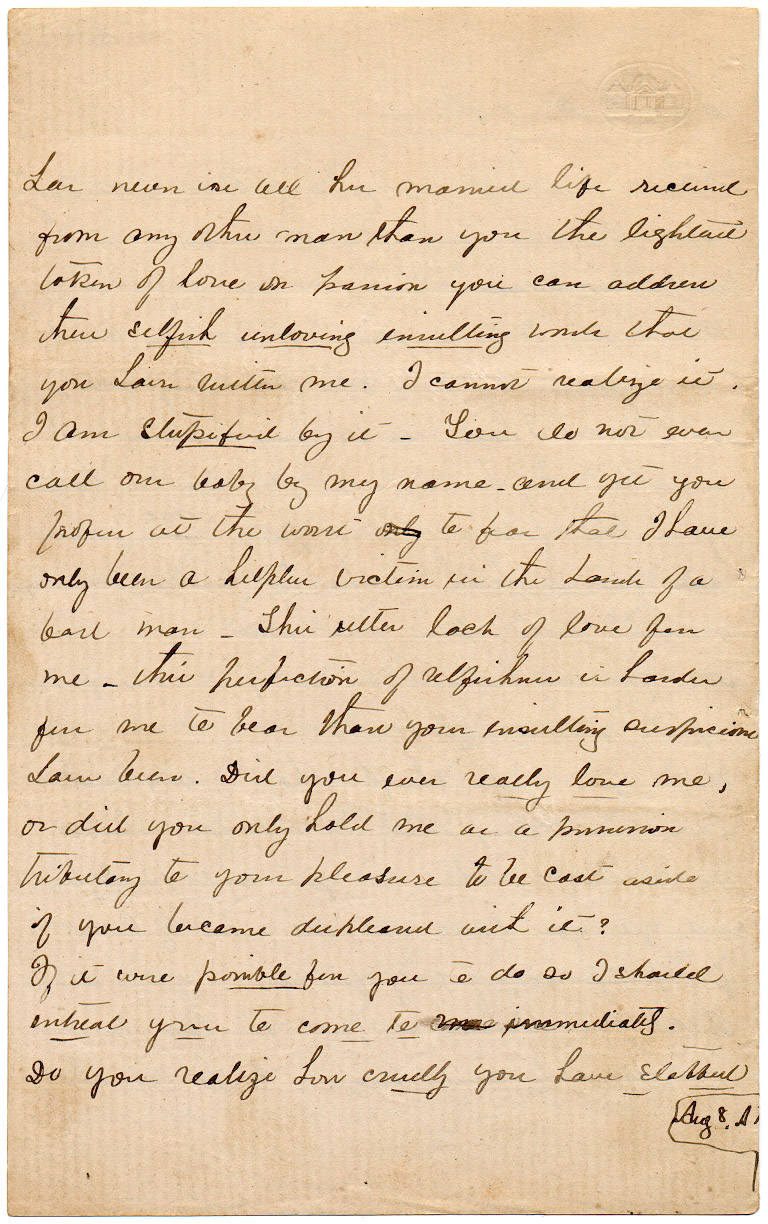 has never in all her married life received
from any other man than you the lightest
token of love or passion you can address
these selfish unloving insulting words that
you have written me. I cannot realize it.
I am stupified by it - You do not even
call our baby by my name - and yet you
profess at the worst only to fear that I have
only been a helpless victim in the hands of a
bad man - This utter lack of love for
me - this perfection of selfishness is harder
for me to bear than your insulting suspicions
have been. Did you ever really love me,
or did you only hold me as a possession
tributary to your pleasure to be cast aside
if you became displeased with it?
If it were possible for you to do so I should
entreat you to come to me immediately.
Do you realize how cruelly you have stabbed
Aug 8,